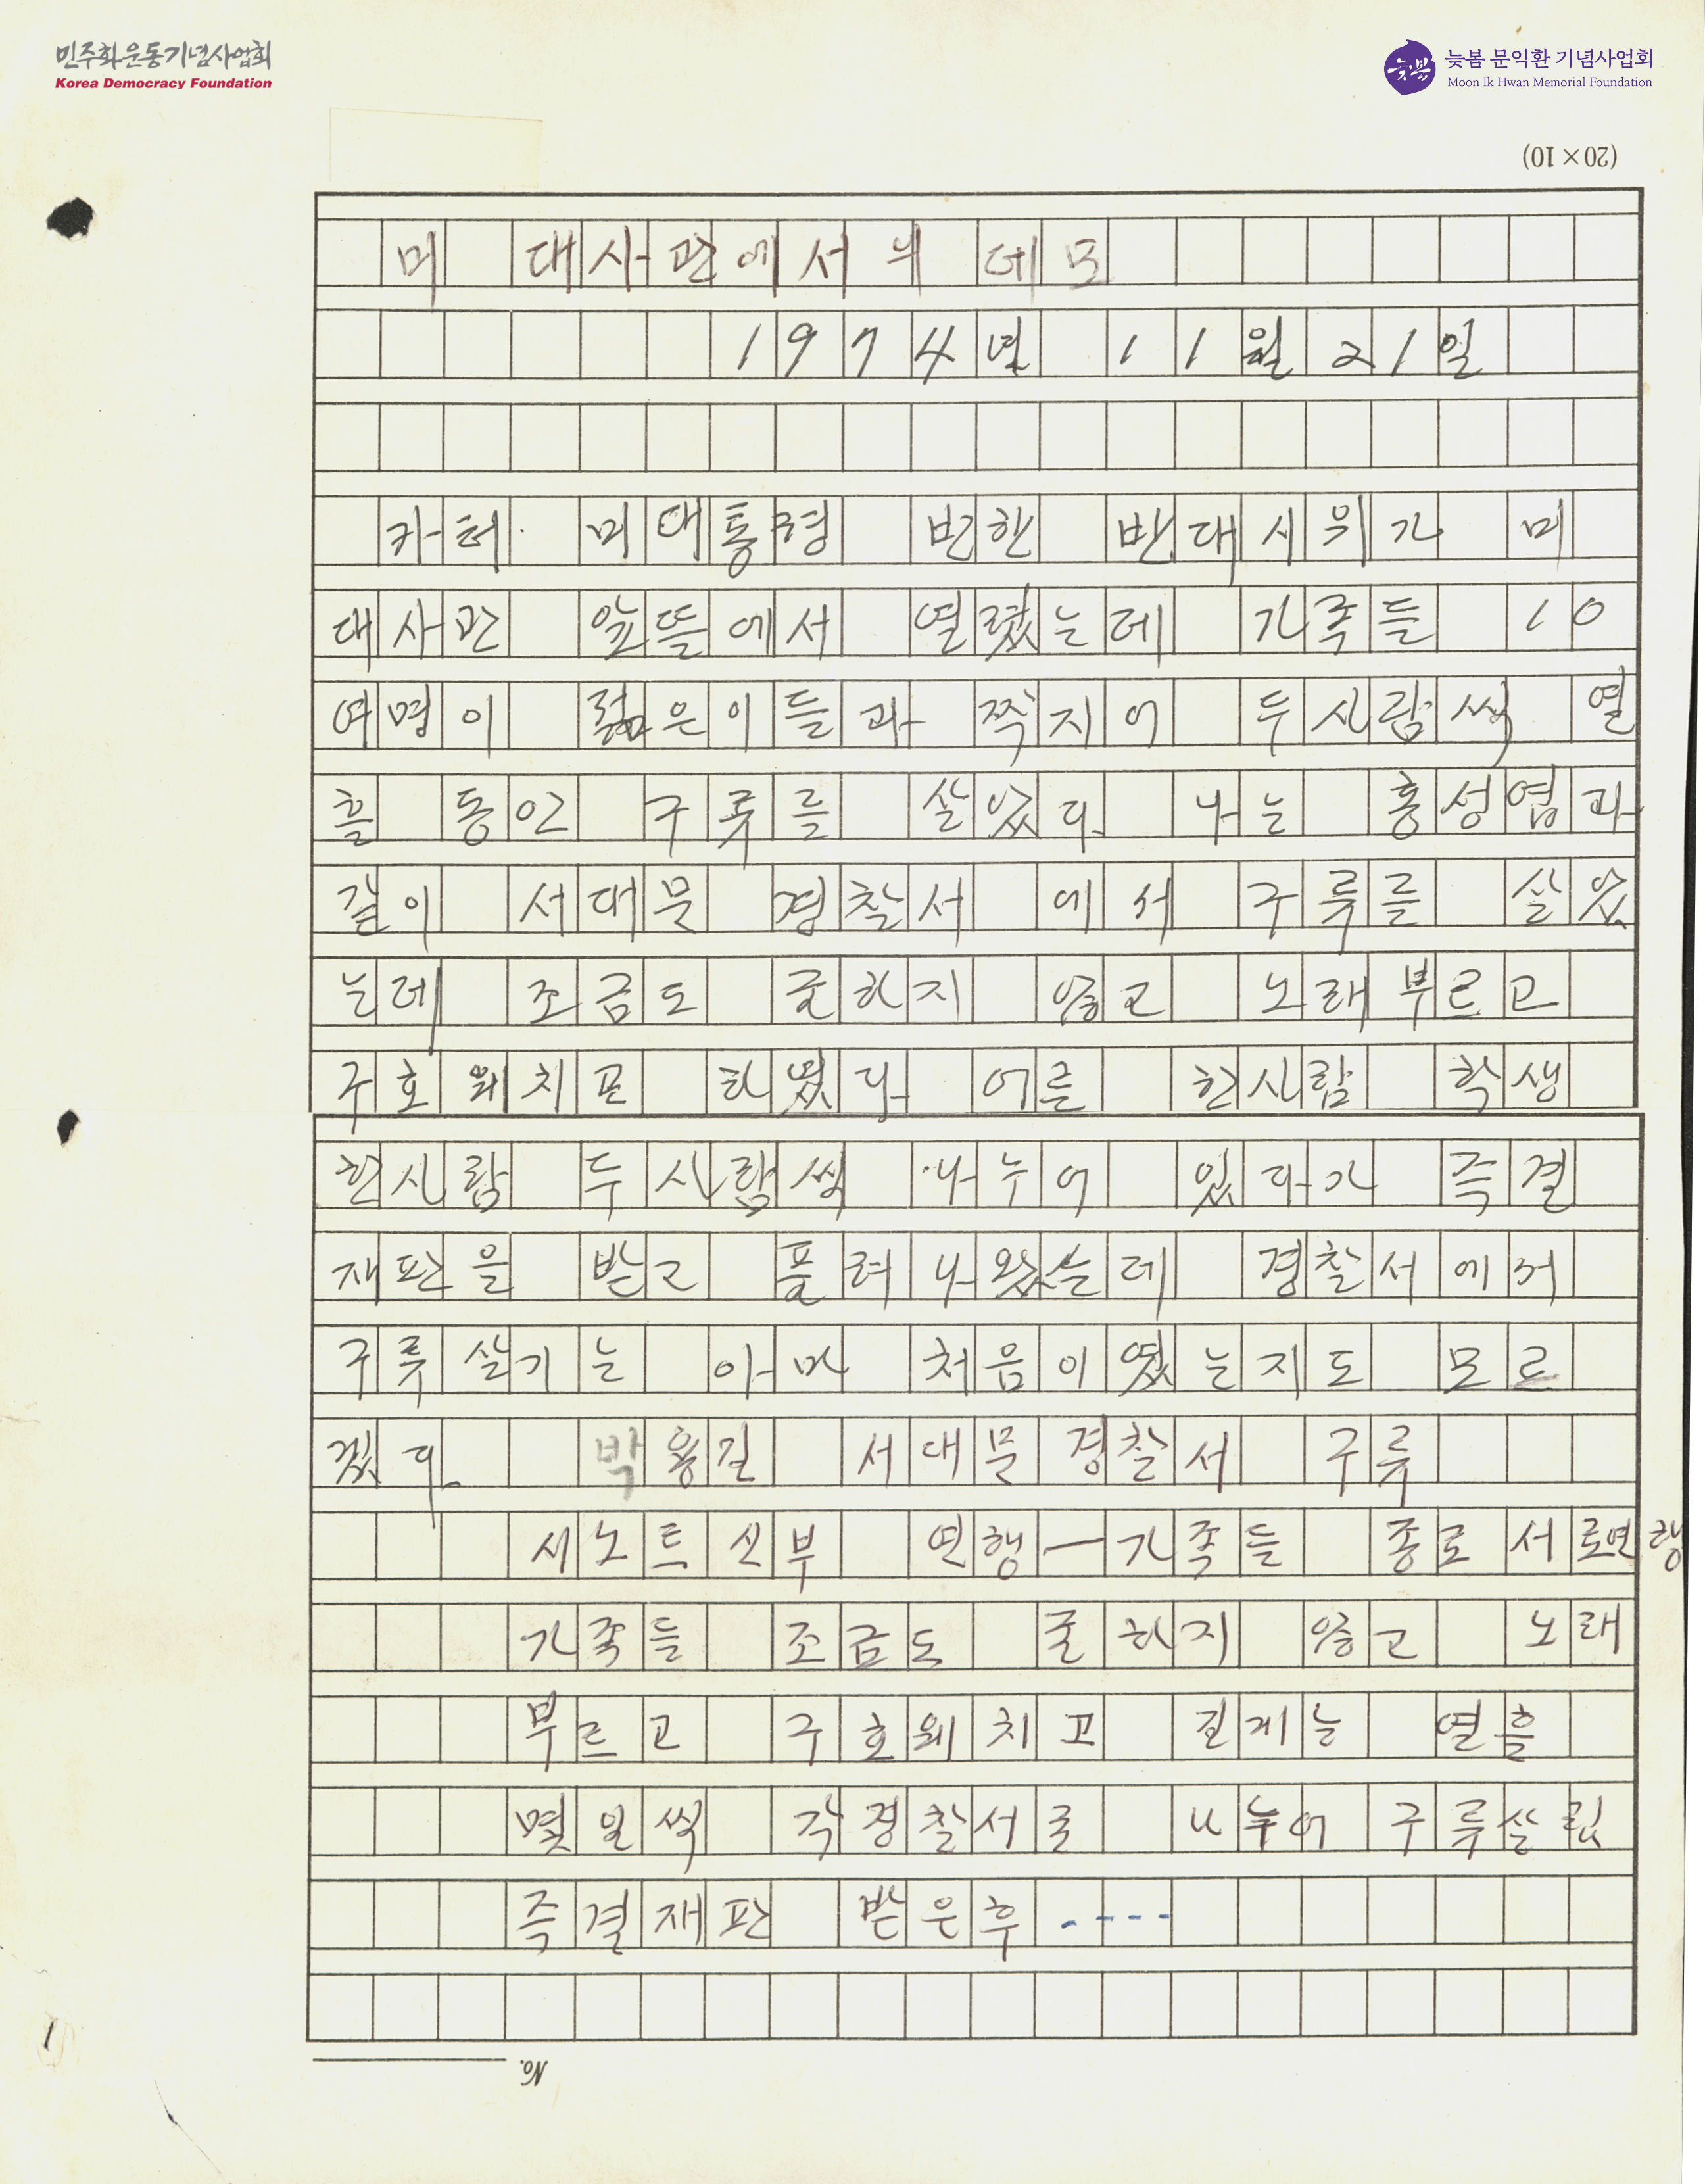 민주화운동기념사업회
Korea Democracy Foundation
늦봄 문익환 기념사업회
Moon Ik Hwan Memorial Foundation
(20×10)
미 대사관에서의 데모
1974년 11월 21일
카터 미대통령 방한 반대시위가 미
대사관 앞뜰에서 열렸는데 가족들 10
여명이 젊은이들과 짝지어 두사람씩 열
흘 동안 구류를 살았다 나는 홍성엽과
같이 서대문 경찰서 에서 구류를 살았
는데 조금도 굴하지 않고 노래부르고
구호 왜치고 하였다 어른 한사람 학생
한사람 두사람씩 나누어 있다가 즉결
재판을 받고 풀려나왔는데 경찰서에서
구류살기는 아마 처음이였는지도 모르
겠다 박용길 서대문경찰서 구류
시노트신부 연행—가족들 종로서로연행
가족들 조금도 굴하지 않고 노래
부르고 구호왜치고 길게는 열흘
몇일씩 각경찰서로 나누어 구류살림
즉결재판 받은후 ----
No.